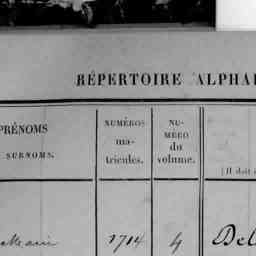 RÉPERTOIRE ALPHA
PRÉNOMS
SURNOMS.
NUMÉROS
ma-
tricules.
NU-
MÉRO
du
volume.
(Il doit
1714 4 Del